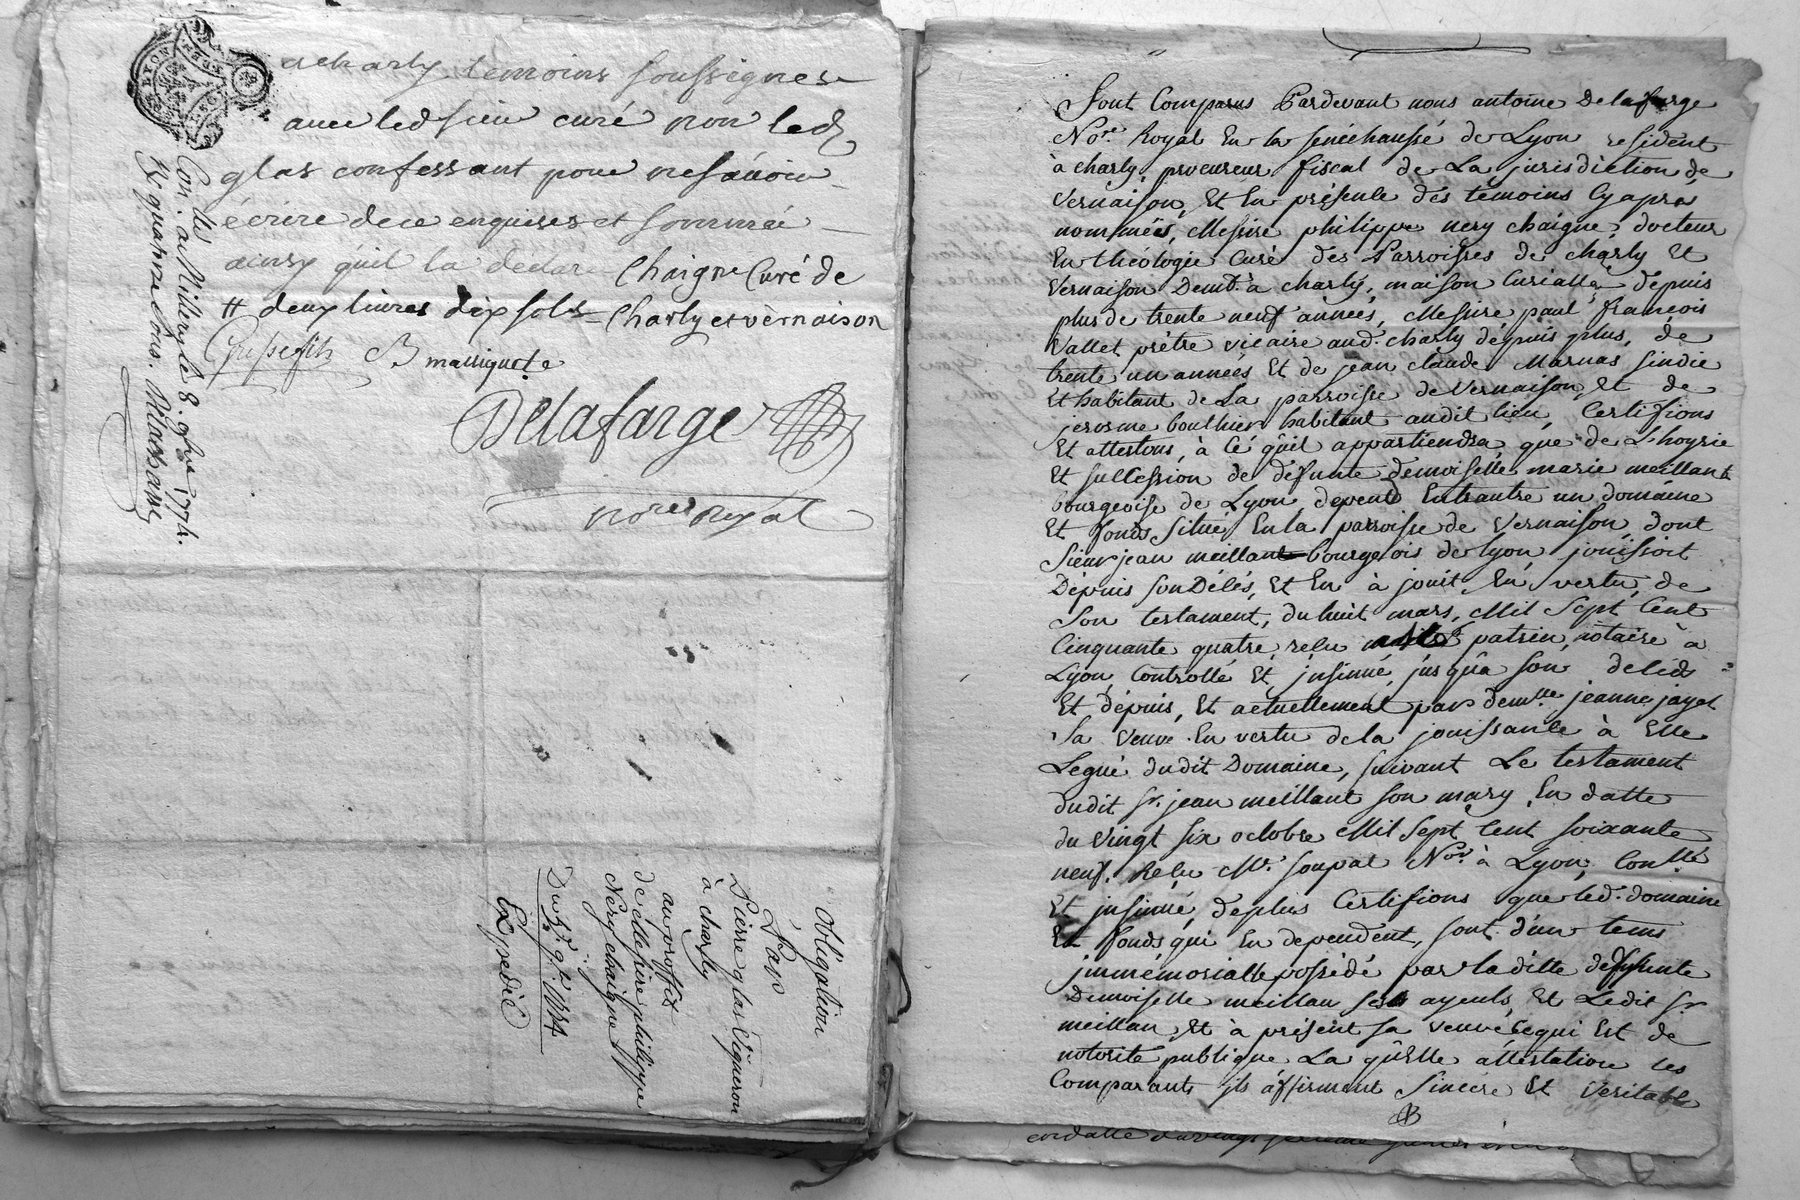 a charly temoins soussignes
avec led sieur curé non led
glas confessant pour ne sávoir
écrire de ce enquires et sommé
ainsy qu'il la declare Chaigne Curé de
# deux livres dix sols Charly et vernaison
B malliquet
Delafarge
nore royal
Con.llé a Millery le 8. 9bre 1774.
Rx quatorze sous.
Obligation
Par
Pierre glas Vigneron
à charly
au proffit
de Messire philippe
Nery chaigne
Du 9bre 1774
Expedié
Sont Comparus Pardevant nous antoine Delafarge
No.re Royal En la senéchaussé de Lyon resident
à charly procureur fiscal de La jurisdiction de
Vernaison, Et En présence des témoins Cy apres
nommées, Messire philippe nery chaigne, docteur
En théologie Curé des Parroisses de charly Et
Vernaison Demt. à charly, maison Curialle, depuis
plus de trente neuf années, Messire paul francois
Vallet prêtre vicaire aud. charly dépuis plus, de
trente un années Et de jean claude Marnas sindic
Et habitant de La parroisse de Vernaison, Et de
jerosme bouthier habitant audit lieu, Certifions
Et attestons, à Cé qûil appartiendra, que de L'hoyrie
Et succession de défunte demoiselle marie meillant
bourgeoise de Lyon, depend Entrautre un domaine
Et fonds situé En la parroisse de Vernaison, dont
Sieur jean meillant bourgeois de lyon, jouissoit
Dépuis son Délés, Et En à jouit En vertu, de
Son testament, du huit mars, Mil Sept Cent
Cinquante quatre, reçu patrin, notaire à
Lyon, Controllé Et jnsinué, jusqûa son decéd
Et dépuis, Et actuellement par demlle. jeanne jayet
Sa Veuve En vertu de la jouissance à Elle
Legué dudit Domaine, suivant Le testament
dudit sr. jean meillant son mary, En datte
du Vingt six octobre Mil Sept Cent soixante
neuf. Reçu Me. soupat Nore. à Lyon, Con.llé
Et jnsinué, deplus Certifions que led. domaine
Et fonds qui En dependent, sont d'un tems
jmmémorialle possédé par la ditte deffunte
Demoiselle meillan ses ayeuls, Et Ledit sr.
meillan, Et à présent sa veuve Ce qui Est de
notorité publique La qûelle attestation les
Comparants jls áffirment Sincere Et Veritable